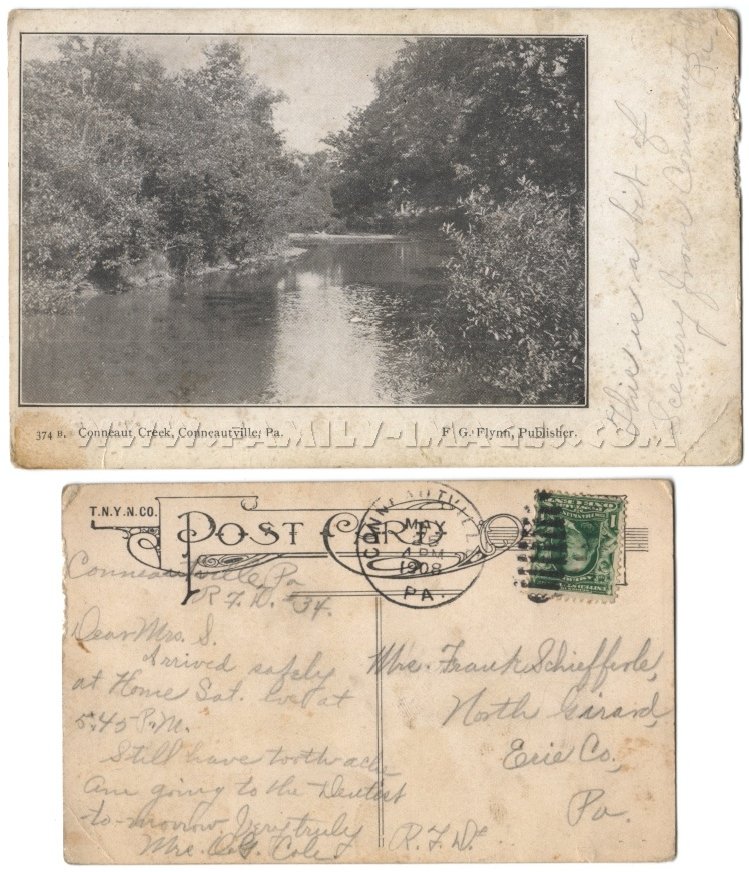 This is a bit of
Scenery from Conneautville
Pa
374 B. Conneaut Creek, Conneautville, Pa.
F. G. Flynn, Publisher.
WWW.FAMILY-IMAGES.COM
T.N.Y.N.CO.
POST CARD
CONNEAUTVILLE
MAY
4 PM
1908
PA.
Conneautville Pa
R.F.D. 34.
Dear Mrs. S.
Arrived safely
at Home Sat. eve at
5.45 P.M.
Still have toothache
Am going to the Dentist
to-morrow. Very truly
Mrs. O.G. Cole.
Mrs. Frank Schiefferle,
North Girard,
Erie Co,
Pa.
R.F.D.